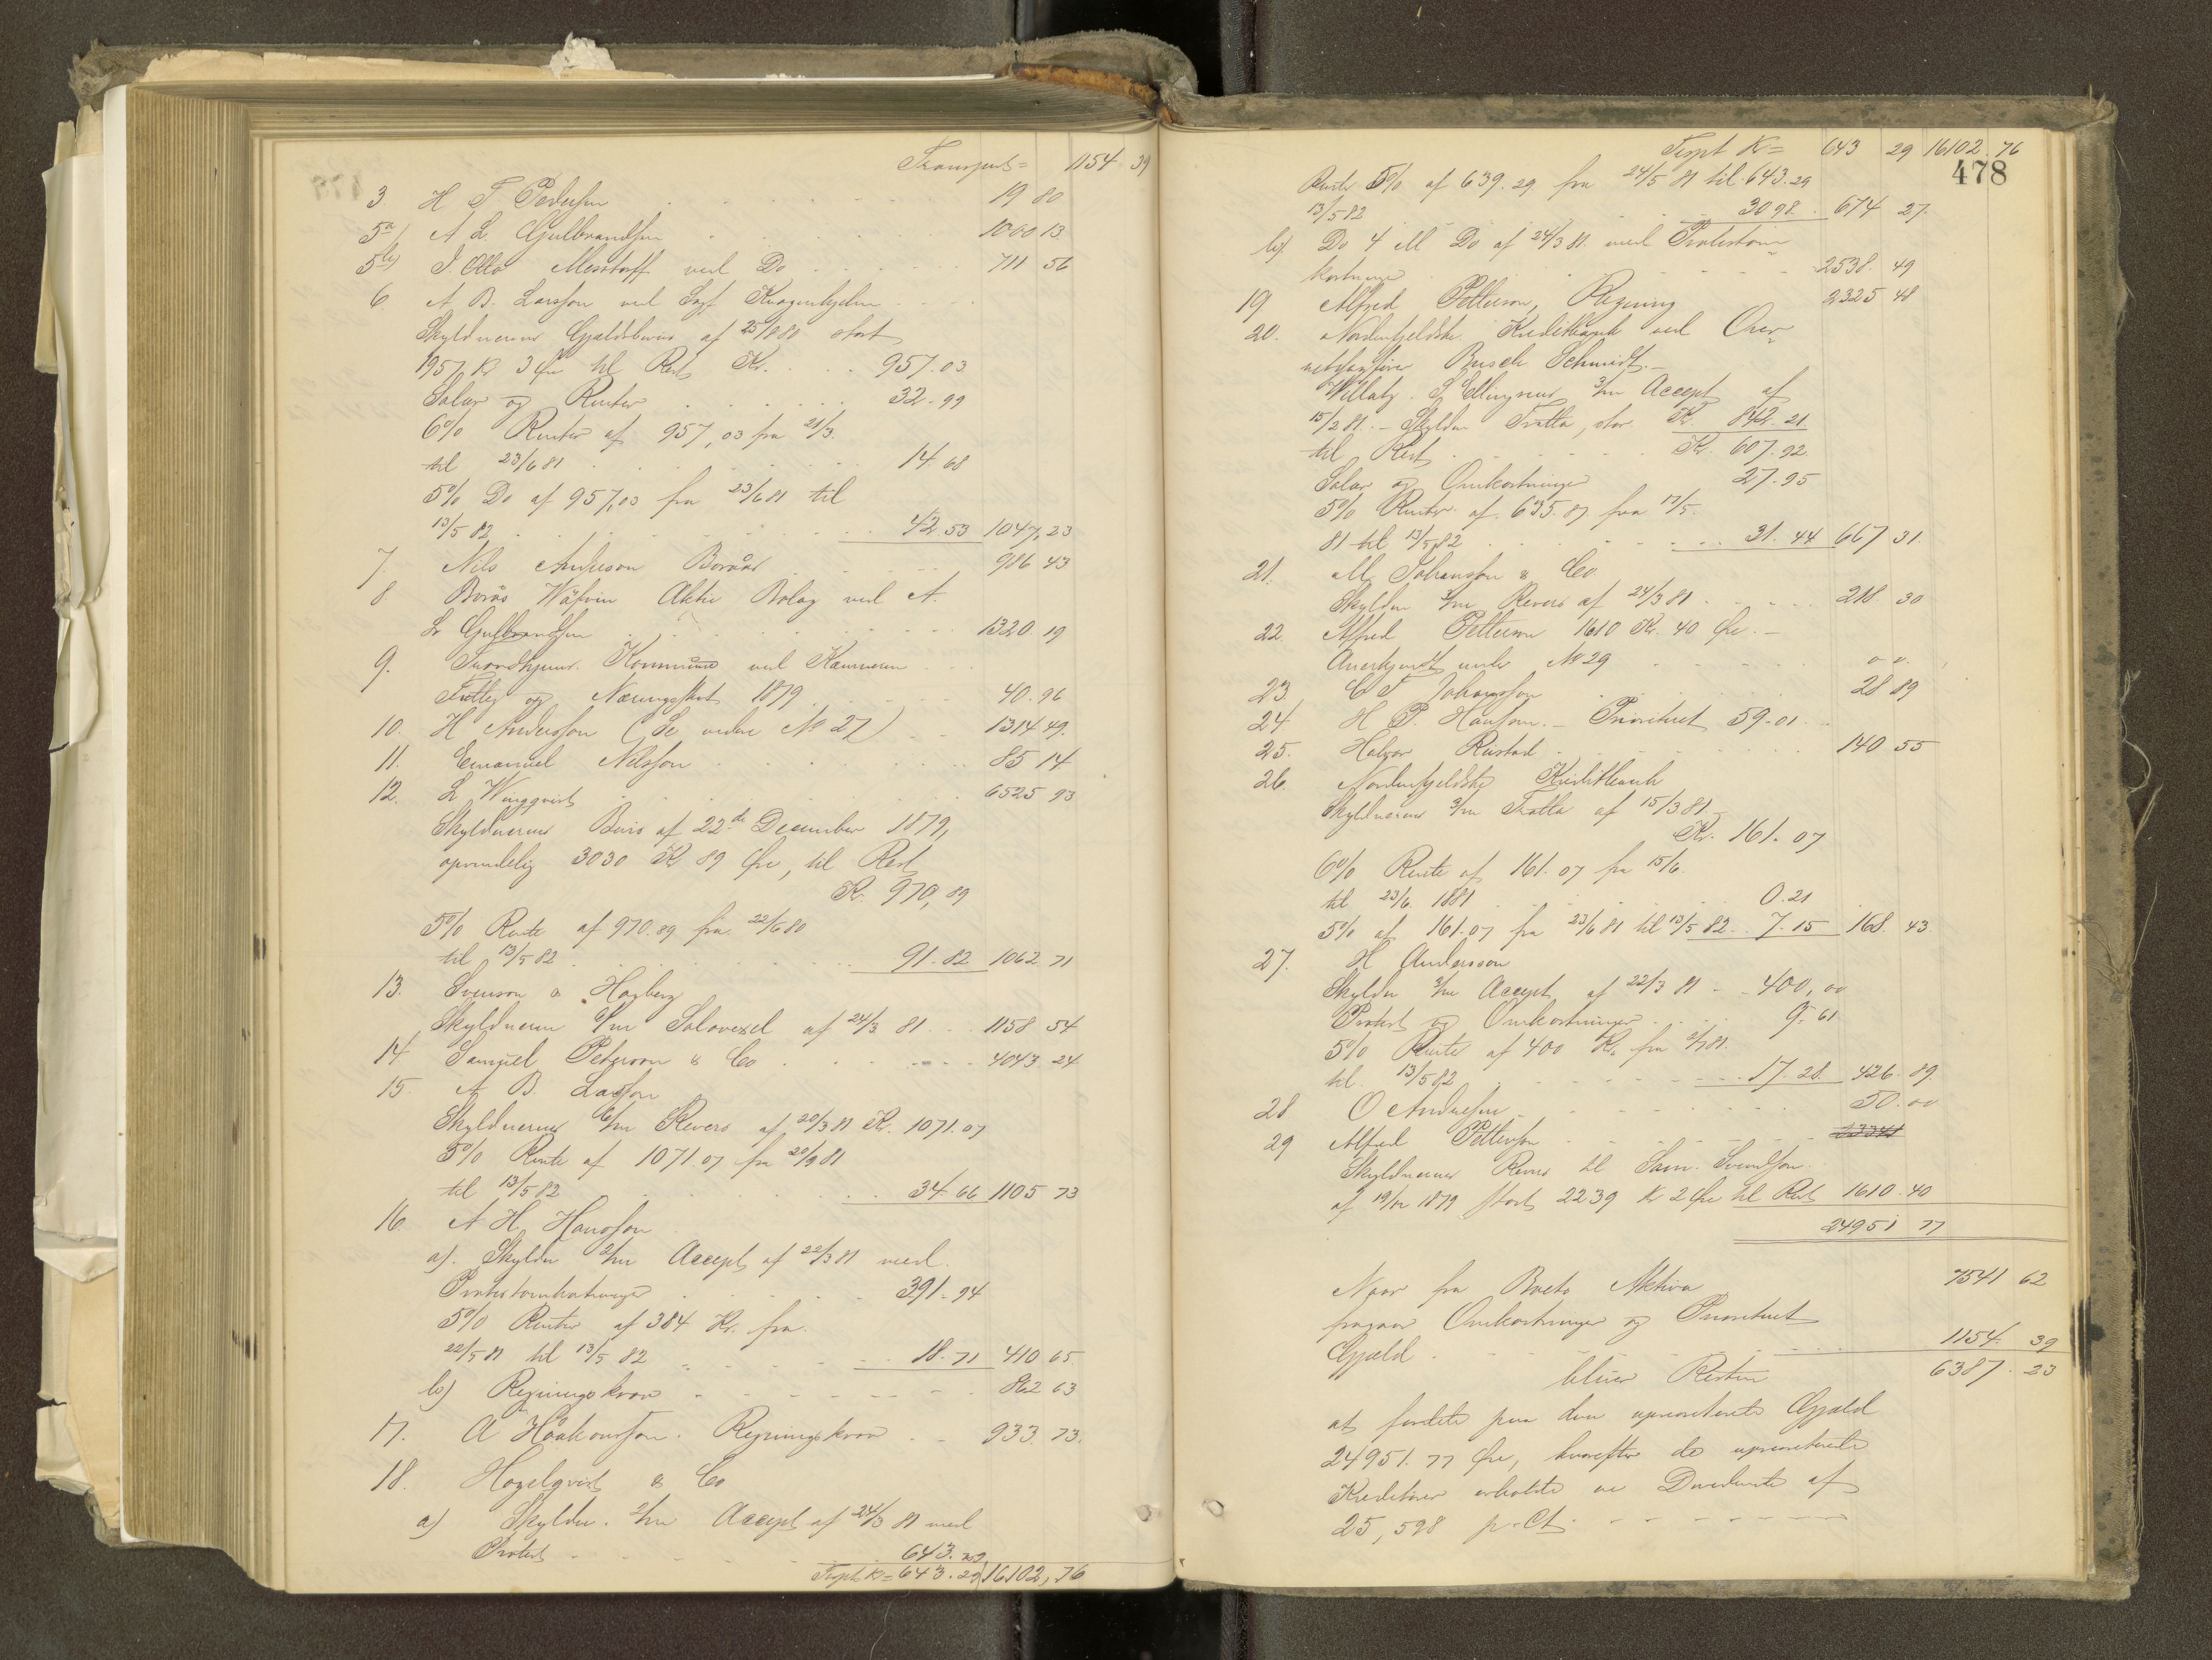 Transport = 1154 39
3 H T Pedersen 19 80
5a) A L. Gulbrandsen 1060 13
5b) J. Otto Messtorff ved Do 711 56
6. A B. Larsson ved Sagf. Knagenhjelm
Skyldnerens Gjældsbevis af 25/8 80 stort
1957 Kr 3 Øre til Rest Kr. 957.03
Salær og Renter 32.99
6% Renter af 957,03 fra 21/3.
til 23/6 81 14.68
5% Do af 957,03 fra 23/6 81 til
13/5 82 42.53 1047,23
7. Nils Anderson Boråås 986 43
8 Borås Wäfveri Aktie Bolag ved A.
L Gulbrandsen 1320.19
9. Trondhjems Kommune ved Kæmneren
Fattig og Næringsskat 1879 40.96
10. H Andersson (Se videre No 27) 1314 49.
11. Emanuel Nilsson 85 14
12. L Wingqvist 6525 93
Skyldnerens Bevis af 22de December 1879,
oprindelig 3030 Kr 89 Øre, til Rest
Kr. 970,89
5% Rente af 970.89 fra 22/6 80
til 13/5 82 91.82 1062 71
13. Svenson & Hagberg
Skyldneren 6/m Solavexel af 24/3 81 1158 54
14 Samuel Peterson & Co 4043.24
15. A B. Larsson
Skyldnerens 6/m Revers af 20/3 81 Kr. 1071.07
5% Rente af 1071.07 fra 20/9 81
til 13/5 82 34.66 1105 73
16. A H. Hansson
a). Skyldn 2/m Accept af 22/3 81 med
Protestomkostninger 391.94
5% Renter af 384 Kr. fra
22/5 81 til 13/5 82 18.71 410 65
b) Regningskrav 862 63
17. A Håakonsson. Regningskrav 933.73.
18. Hagelqvist & Co
a) Skyldn. 2/m Accept af 24/3 81 med
Protest 643.29
Trspt Kr = 643.29 16102,76
478
Trspt Kr = 643 29 16102.76
Rente 5% af 639.29 fra 24/5 81 til 643.29
13/5 82 30 98 674 27.
b) Do 4 M Do af 24/3 81 med Protestom-
kostninger 2538.49
19 Alfred Petterson, Regning 2325 48
20. Nordenfjeldske Kreditbank ved Over-
retssagfører Busch Schmidt.
S Ellingsens 3/m Accept af
15/2 81. Skyldn Tratta, stor Kr. 842.21
til Rest Kr. 607.92
Salær og Omkostninger 27.95
5% Renter af 635.87 fra 17/5.
81 til 13/5 82 31.44 667 31.
21. M. Johansson & Co
Skyldn 3/m Revers af 24/3 81 218 30
22. Alfred Petterson 1610 Kr. 40 Øre.
Anerkjendt under No 29
23 C F Johansson 28 89
24 H P. Hansen. Prioritet 59.01
25. Halvor Rustad 140 55
26. Nordenfjeldske Kreditbank
Skyldnerens 3/m Tratta af 15/3 81
Kr. 161.07
6% Rente af 161.07 fra 15/6.
til 23/6. 1881 0.21
5% af 161.07 fra 23/6 81 til 13/5 82 7.15 168.43
27. H Andersson
Skyldn 3/m Accept af 22/3 81 400,00
Protest og Omkostninger 9.61
5% Rente af 400 Kr. fra 2/7 81.
til 13/5 82 17.28 426.89
28 O Andersen 50.00
29 Alfred Petterson
Skyldnerens Revers til Sam. Svendson
af 19/12 1879 stort 2239 Kr 2 Øre til Rest 1610.40
24951 77
Naar fra Boets Aktiva 7541 62
fragaar Omkostninger og Prioritet
Gjæld 1154. 39
bliver Resten 6387.23
at fordele paa den uprioriterte Gjæld
24951.77 Øre, hvorefter de uprioriterte
Kreditorer erholde en Dividende af
25,598 p.Ct.